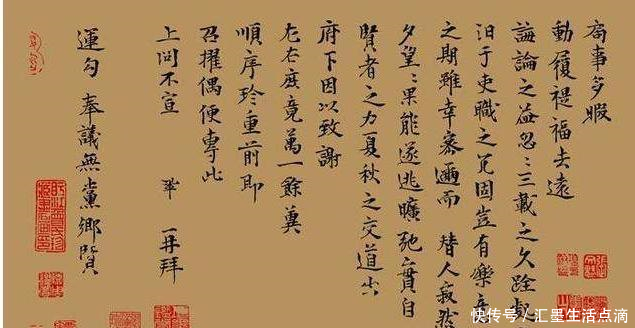 局事多暇
動履禔福去遠
誨論之益忽々三載之久跧處
汨于吏職之冗固豈有樂意
之期雖幸密邇而替人寂然
夕望々果能遂逃曠弛實自
賢者之力夏秋之交道出
府下因以致謝
左右庶竟萬一餘冀
順序珍重前即
召擢偶便專此
上問不宣 鞏 再拜
運勾奉議無黨鄉賢
快传号/汇墨生活点滴